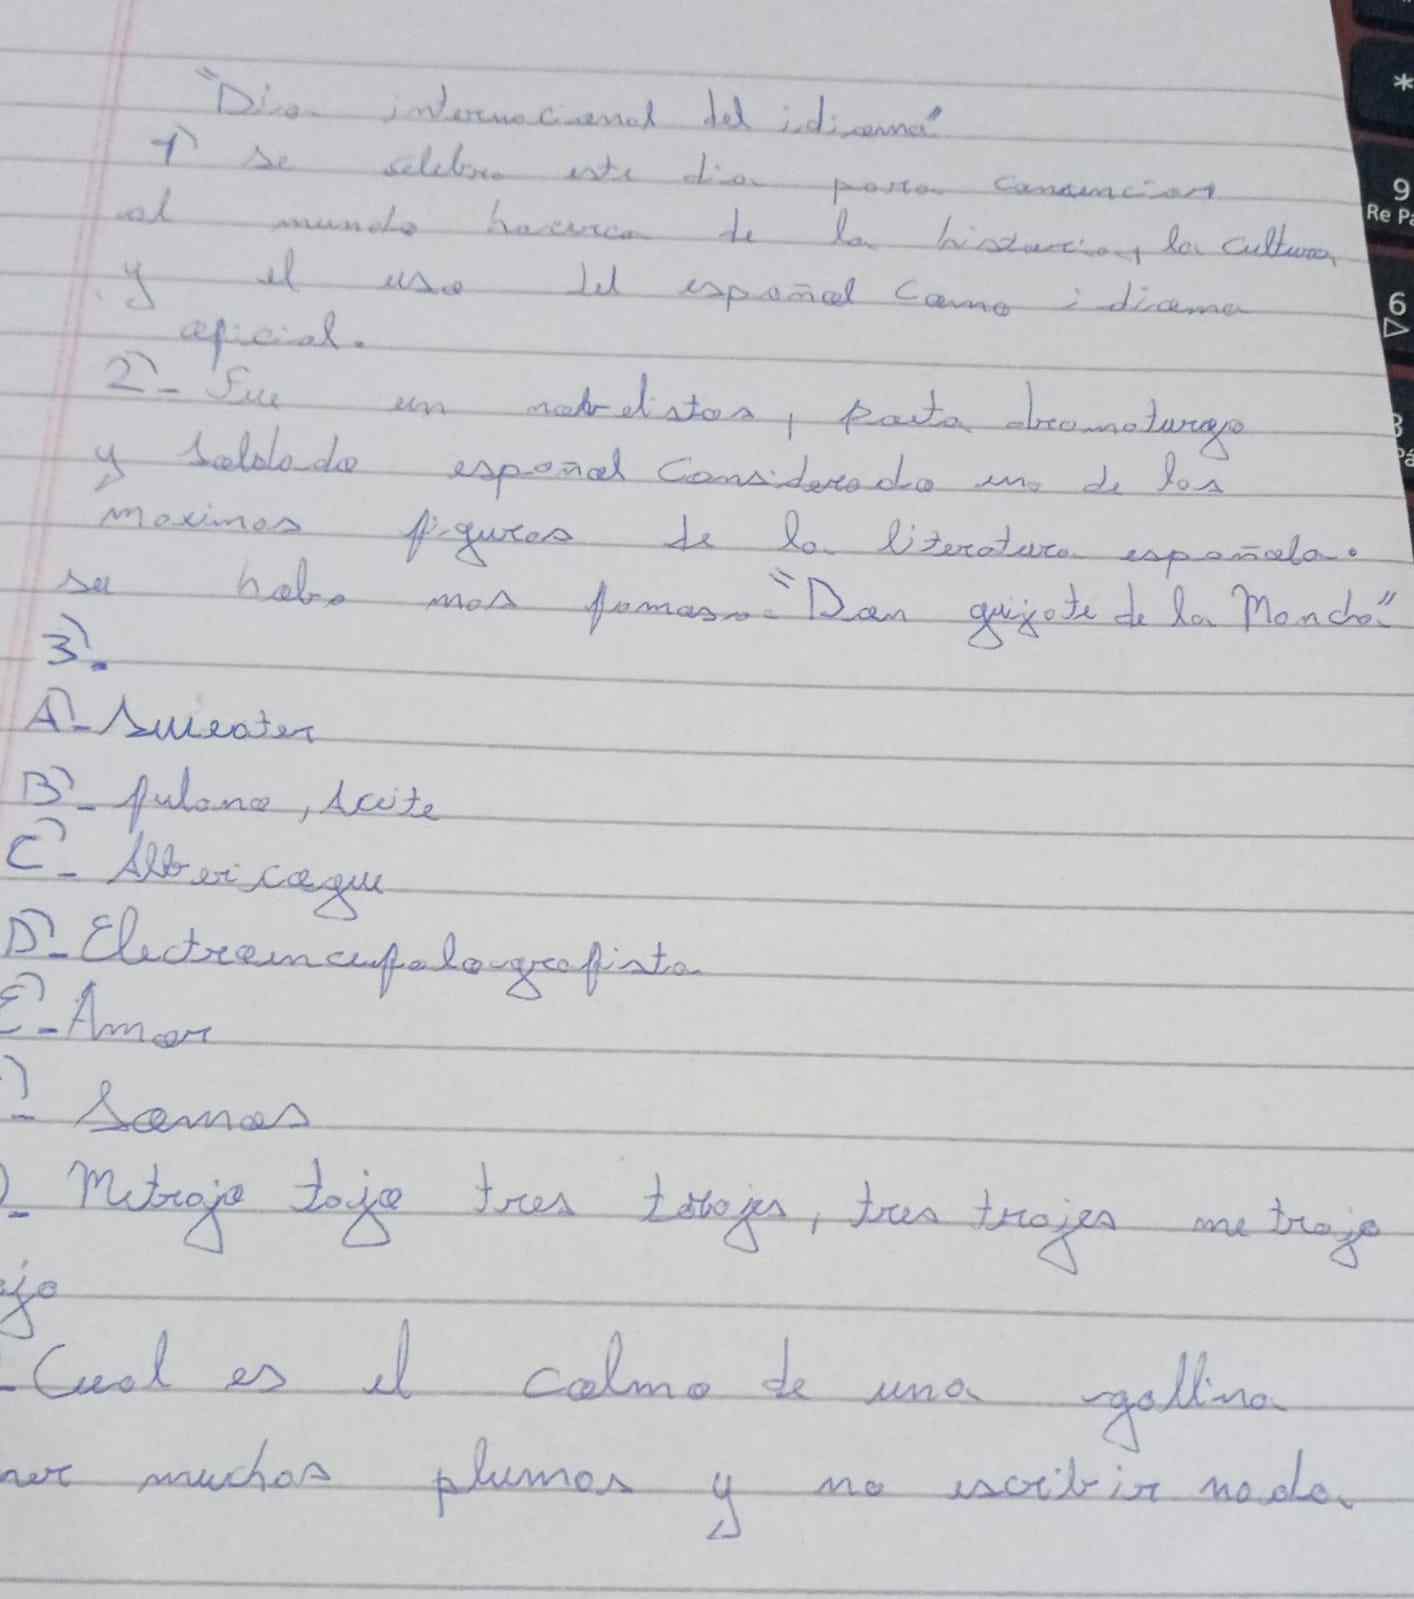 "Dia internacional del idioma"
1) se selebra este dia para consenciar
al mundo hacerca de la historia, la cultura,
y el uso del español como idioma
oficial.
2)- Fue un nobelistas, poeta dramaturgo
y soldado español Considerado una de las
maximas figuras de la literatura española.
su habra mas famosa "Don quijote de la Mancha"
3)-
A)- Sweater
B)- fulano, Aceite
C)- Albericoque
D)- Electroencefalografista
E)- Amor
)- Somos
)- Metrajo tojo tres trajes, tres trajes me trajo
ojo
- Cual es el colmo de una gallina
ner muchas plumas y no escribir nada.